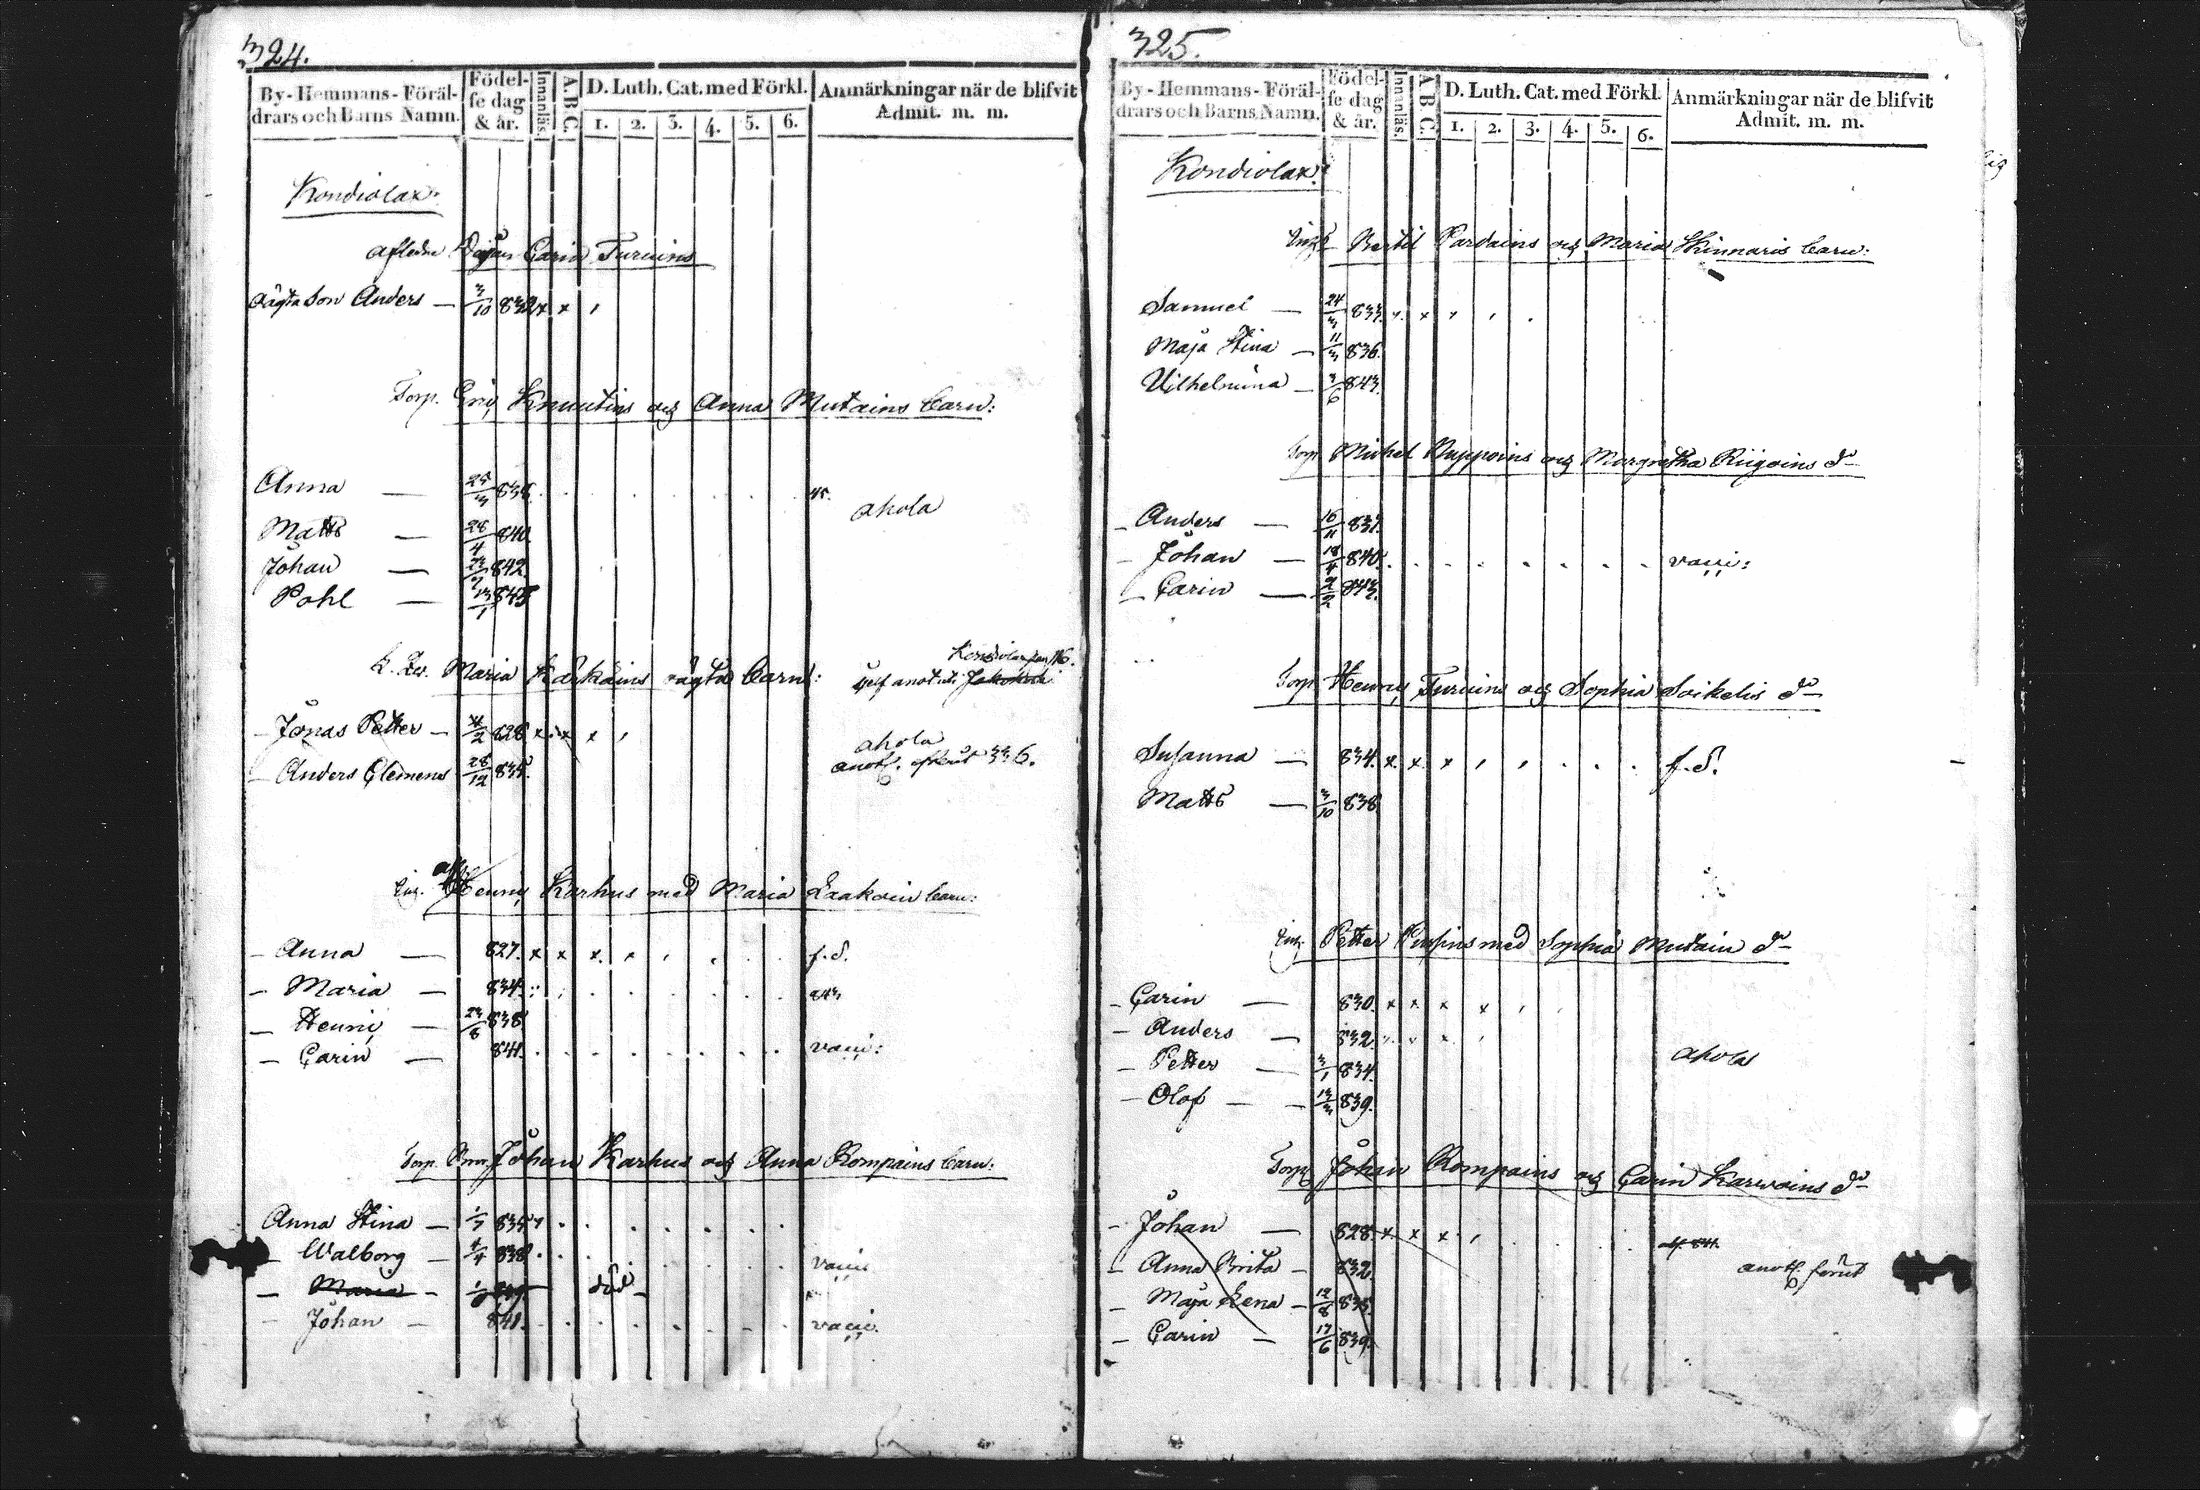 324.
By-Hemmans-Föräl-
drars och Barns Namn.
Födel-
se dag
& år.
Innanläs.
A.B.C.
D. Luth. Cat. med Förkl.
1. 2. 3. 4. 5. 6.
Anmärkningar när de blifvit
Admit. m. m.
Kondiolax:
afledne Carin Turuins
oägta Son Anders — 3/10 832 x x ,
Torp. Eric Knuutins och Anna Mutains barn:
Anna — 25/3 838.
ahola
Matts — 28/4 840.
Johan — 23/7 842.
Pohl — 13/1 845
Maria Kaikains oägta barn:
Kondiolax pag 116.
Jonas Petter — 4/2 828 x x x ,
ahola
Anders Clemens 28/12 835.
anot. förut 336.
Henric Karhus med Maria Laakoin barn:
— Anna — 827. x x x x , f.d.
— Maria — 834. 843
— Henric — 23/8 838.
— Carin — 841. vacci:
Torp. Johan Karhus och Anna Rompains barn:
Anna Stina — 1/7 835
— Walborg — 4/4 838. vacci
— Maria — död
— Johan — 841. vacci.
325.
By-Hemmans-Föräl-
drars och Barns Namn.
Födel-
se dag
& år.
Innanläs.
A.B.C.
D. Luth. Cat. med Förkl.
1. 2. 3. 4. 5. 6.
Anmärkningar när de blifvit
Admit. m. m.
Kondiolax:
Bertil Pardains och Maria Skinnaris barn:
Samuel — 24/3 833.
Maja Stina — 11/3 836.
Vilhelmina — 3/6 843.
Torp. Michel Nuppoins och Margretha Riigoins do
— Anders — 16/11 837.
— Johan — 18/4 840. vacci:
— Carin — 2/2 843.
Torp. Henric Turuins och Sophia Soikelis do
Susanna — 834. x x x , , f.d.
Matts — 3/10 838.
Petter med Sophia Mutain do
— Carin — 830. x x x x , ,
— Anders — 832.
ahola
— Petter — 3/1 834.
— Olof — 13/3 839.
Torp. Johan Rompains och Carin Karwoins do
— Johan — 828. x x x ,
— Anna Brita — 832.
anot. förut
— Maja Lena — 12/8 835.
— Carin — 17/6 839.